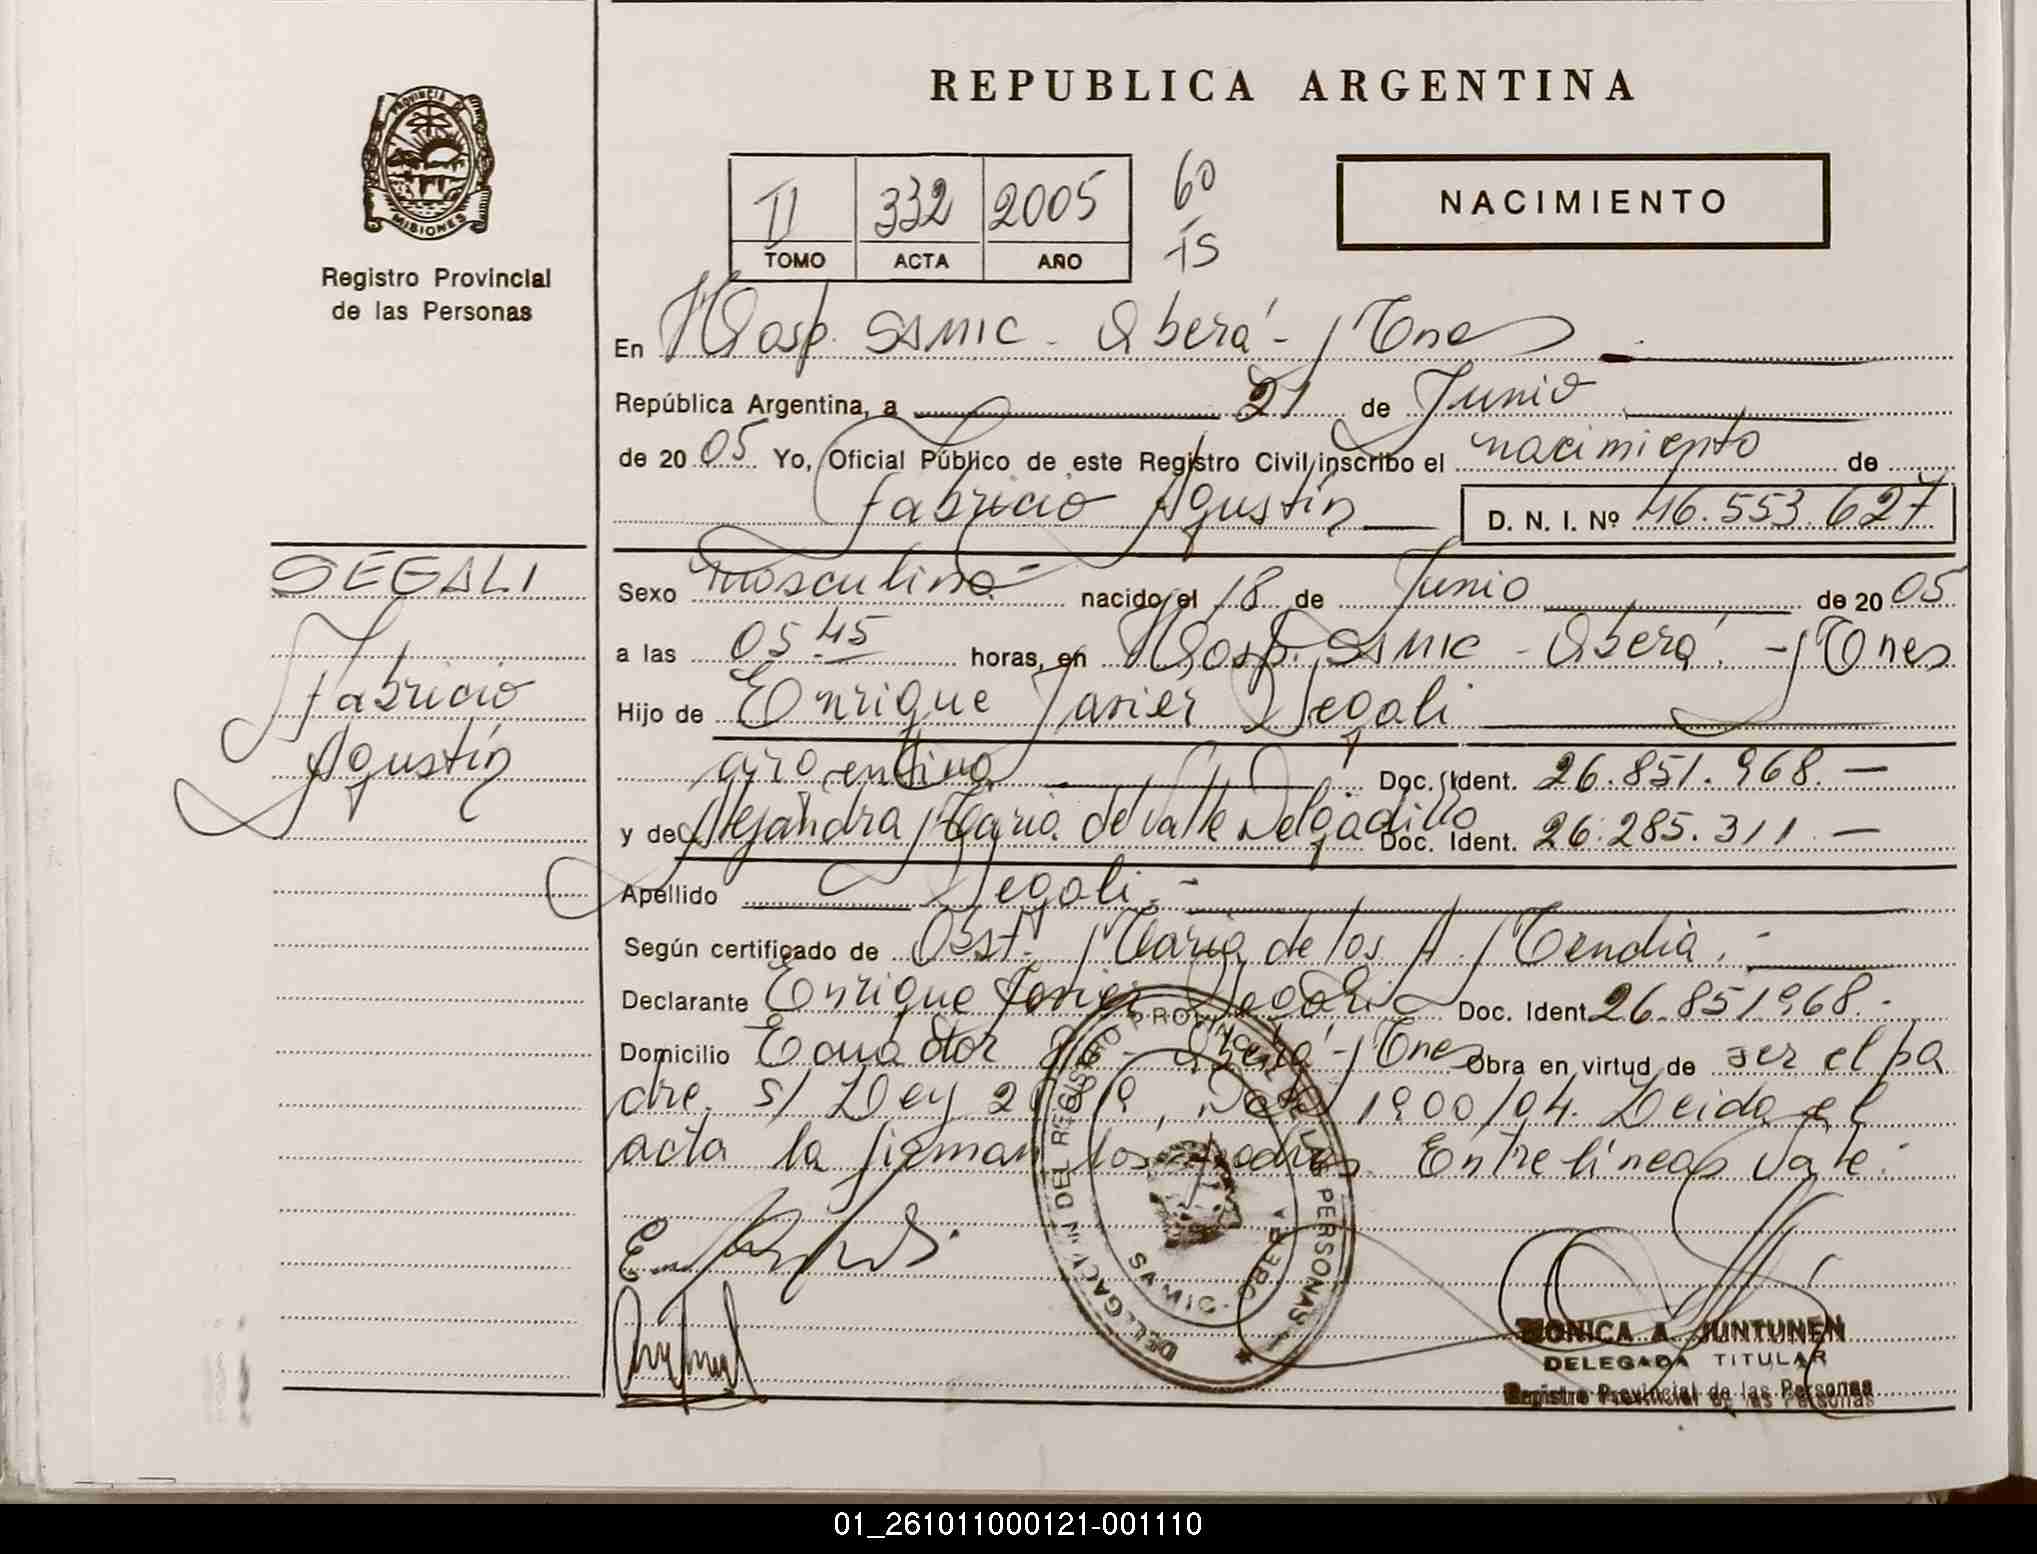 REPUBLICA ARGENTINA
PROVINCIA DE
MISIONES
Registro Provincial
de las Personas
II 332 2005
TOMO ACTA AÑO
60
15
NACIMIENTO
En Hosp. SAMIC - Oberá - Mnes
República Argentina, a 21 de Junio
de 2005 Yo, Oficial Público de este Registro Civil, inscribo el nacimiento de
Fabricio Agustín D. N. I. Nº 46.553.627
SEGALI
Fabricio
Agustín
Sexo masculino - nacido el 18 de Junio de 2005
a las 05.45 horas, en Hosp. SAMIC - Oberá - Mnes
Hijo de Enrique Javier Segali
argentino Doc. Ident. 26.851.968. —
y de Alejandra María del Valle Delgadillo Doc. Ident. 26.285.311. —
Apellido Segali. -
Según certificado de Obst. María de los A. Mendia. -
Declarante Enrique Javier Segali Doc. Ident. 26.851968. -
Domicilio Ecuador - Oberá - Mnes Obra en virtud de ser el pa
dre. s/ Ley , Dto 1900/04. Leida el
acta la firman los padres. Entre líneas vale. -
DELEGACION DEL REGISTRO PROVINCIAL DE LAS PERSONAS
SAMIC - OBERA
MONICA A. JUNTUNEN
DELEGADA TITULAR
Registro Provincial de las Personas
01_261011000121-001110